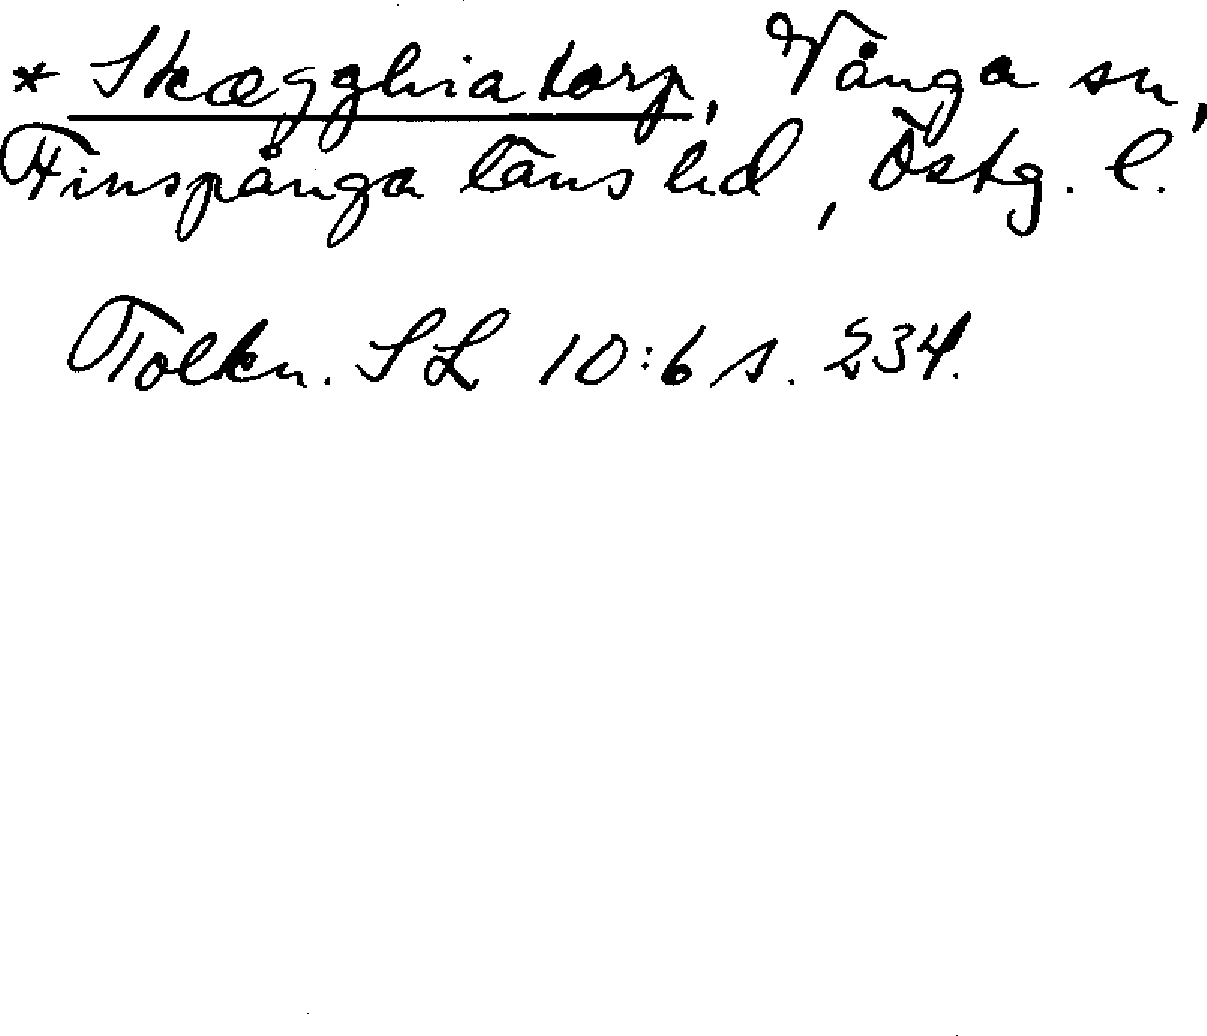 * Skægghiatorp, Vånga sn,
Finspånga läns hd, Östg. l.
Tolkn. SL 10:6 s. 234.